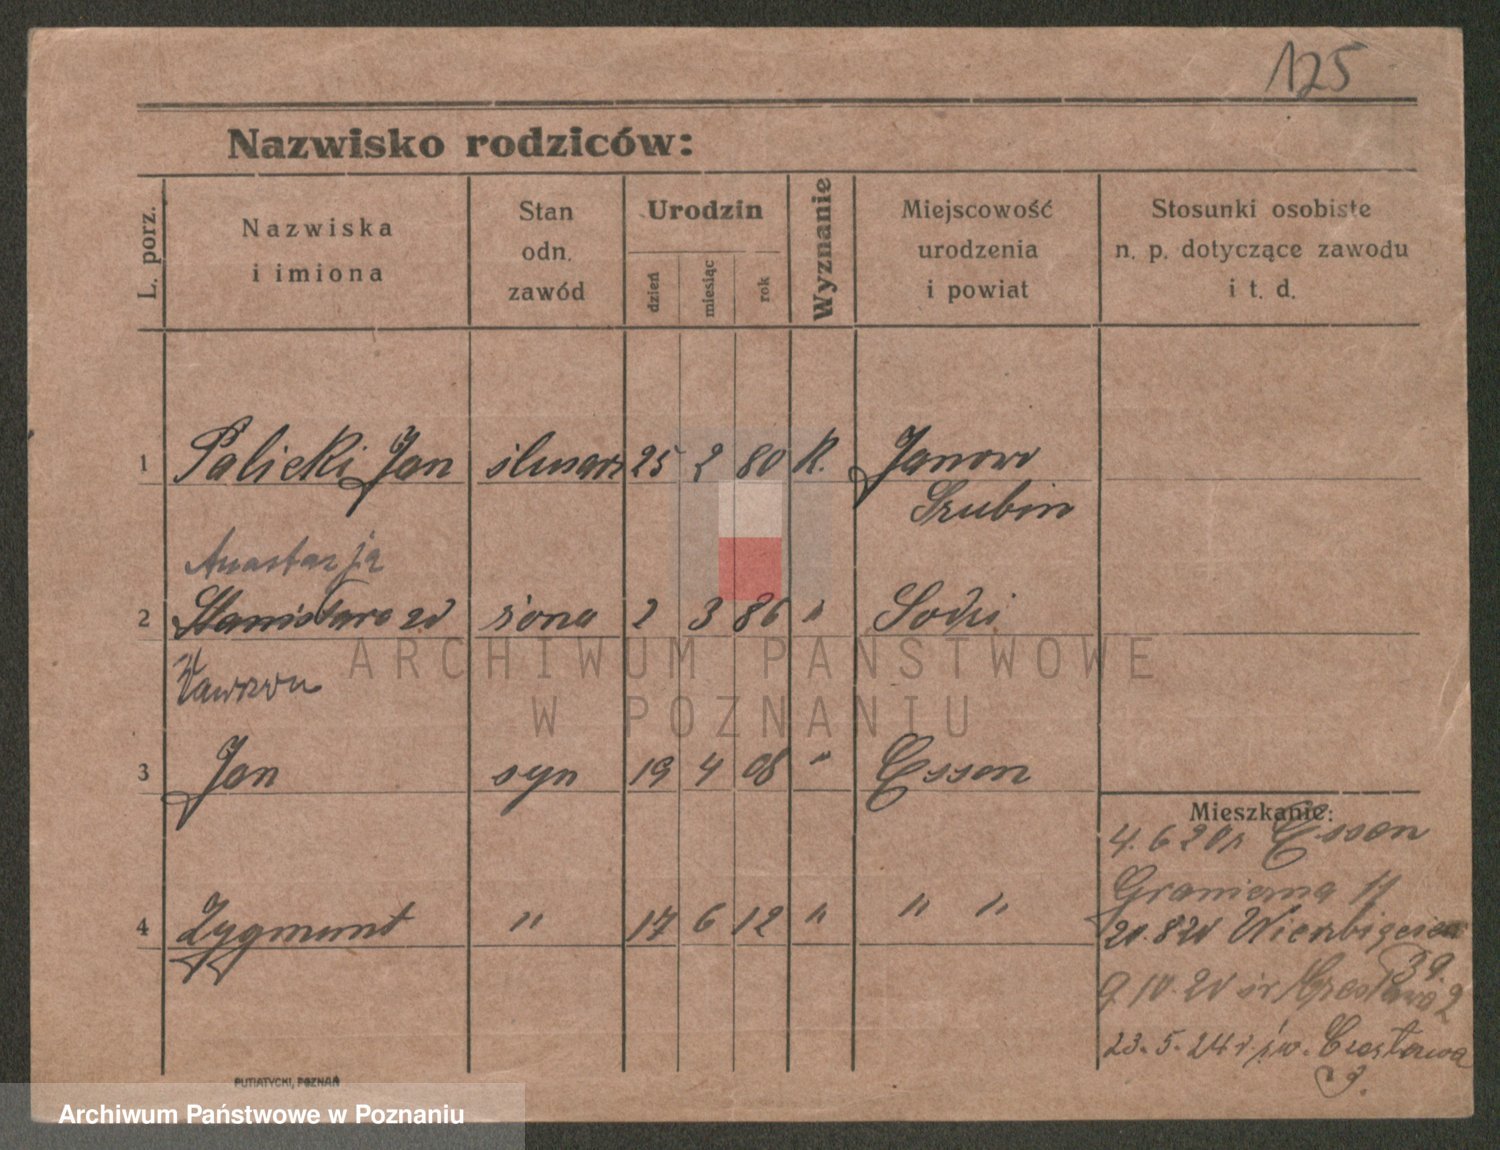 125
Nazwisko rodziców:
L. porz.
Nazwiska
i imiona
Stan
odn.
zawód
Urodzin
dzień
miesiąc
rok
Wyznanie
Miejscowość
urodzenia
i powiat
Stosunki osobiste
n. p. dotyczące zawodu
i t. d.
1 Palicki Jan ślusarz 25 2 80 K. Janowo
Szubin
Anastazja
2 Stanisława zd żona 2 3 86 "
3 Jan syn 19 4 08 " Essen
Mieszkanie:
4. 6 20 r Essen
4 Zygmunt " 17 6 12 " " "
Graniczna 11
20. 8 20 Wierzbięcice
39.
9. 10. 20 2
23. 5. 24 r. św. Czesława
9.
PUTIATYCKI, POZNAŃ
ARCHIWUM PAŃSTWOWE
W POZNANIU
Archiwum Państwowe w Poznaniu